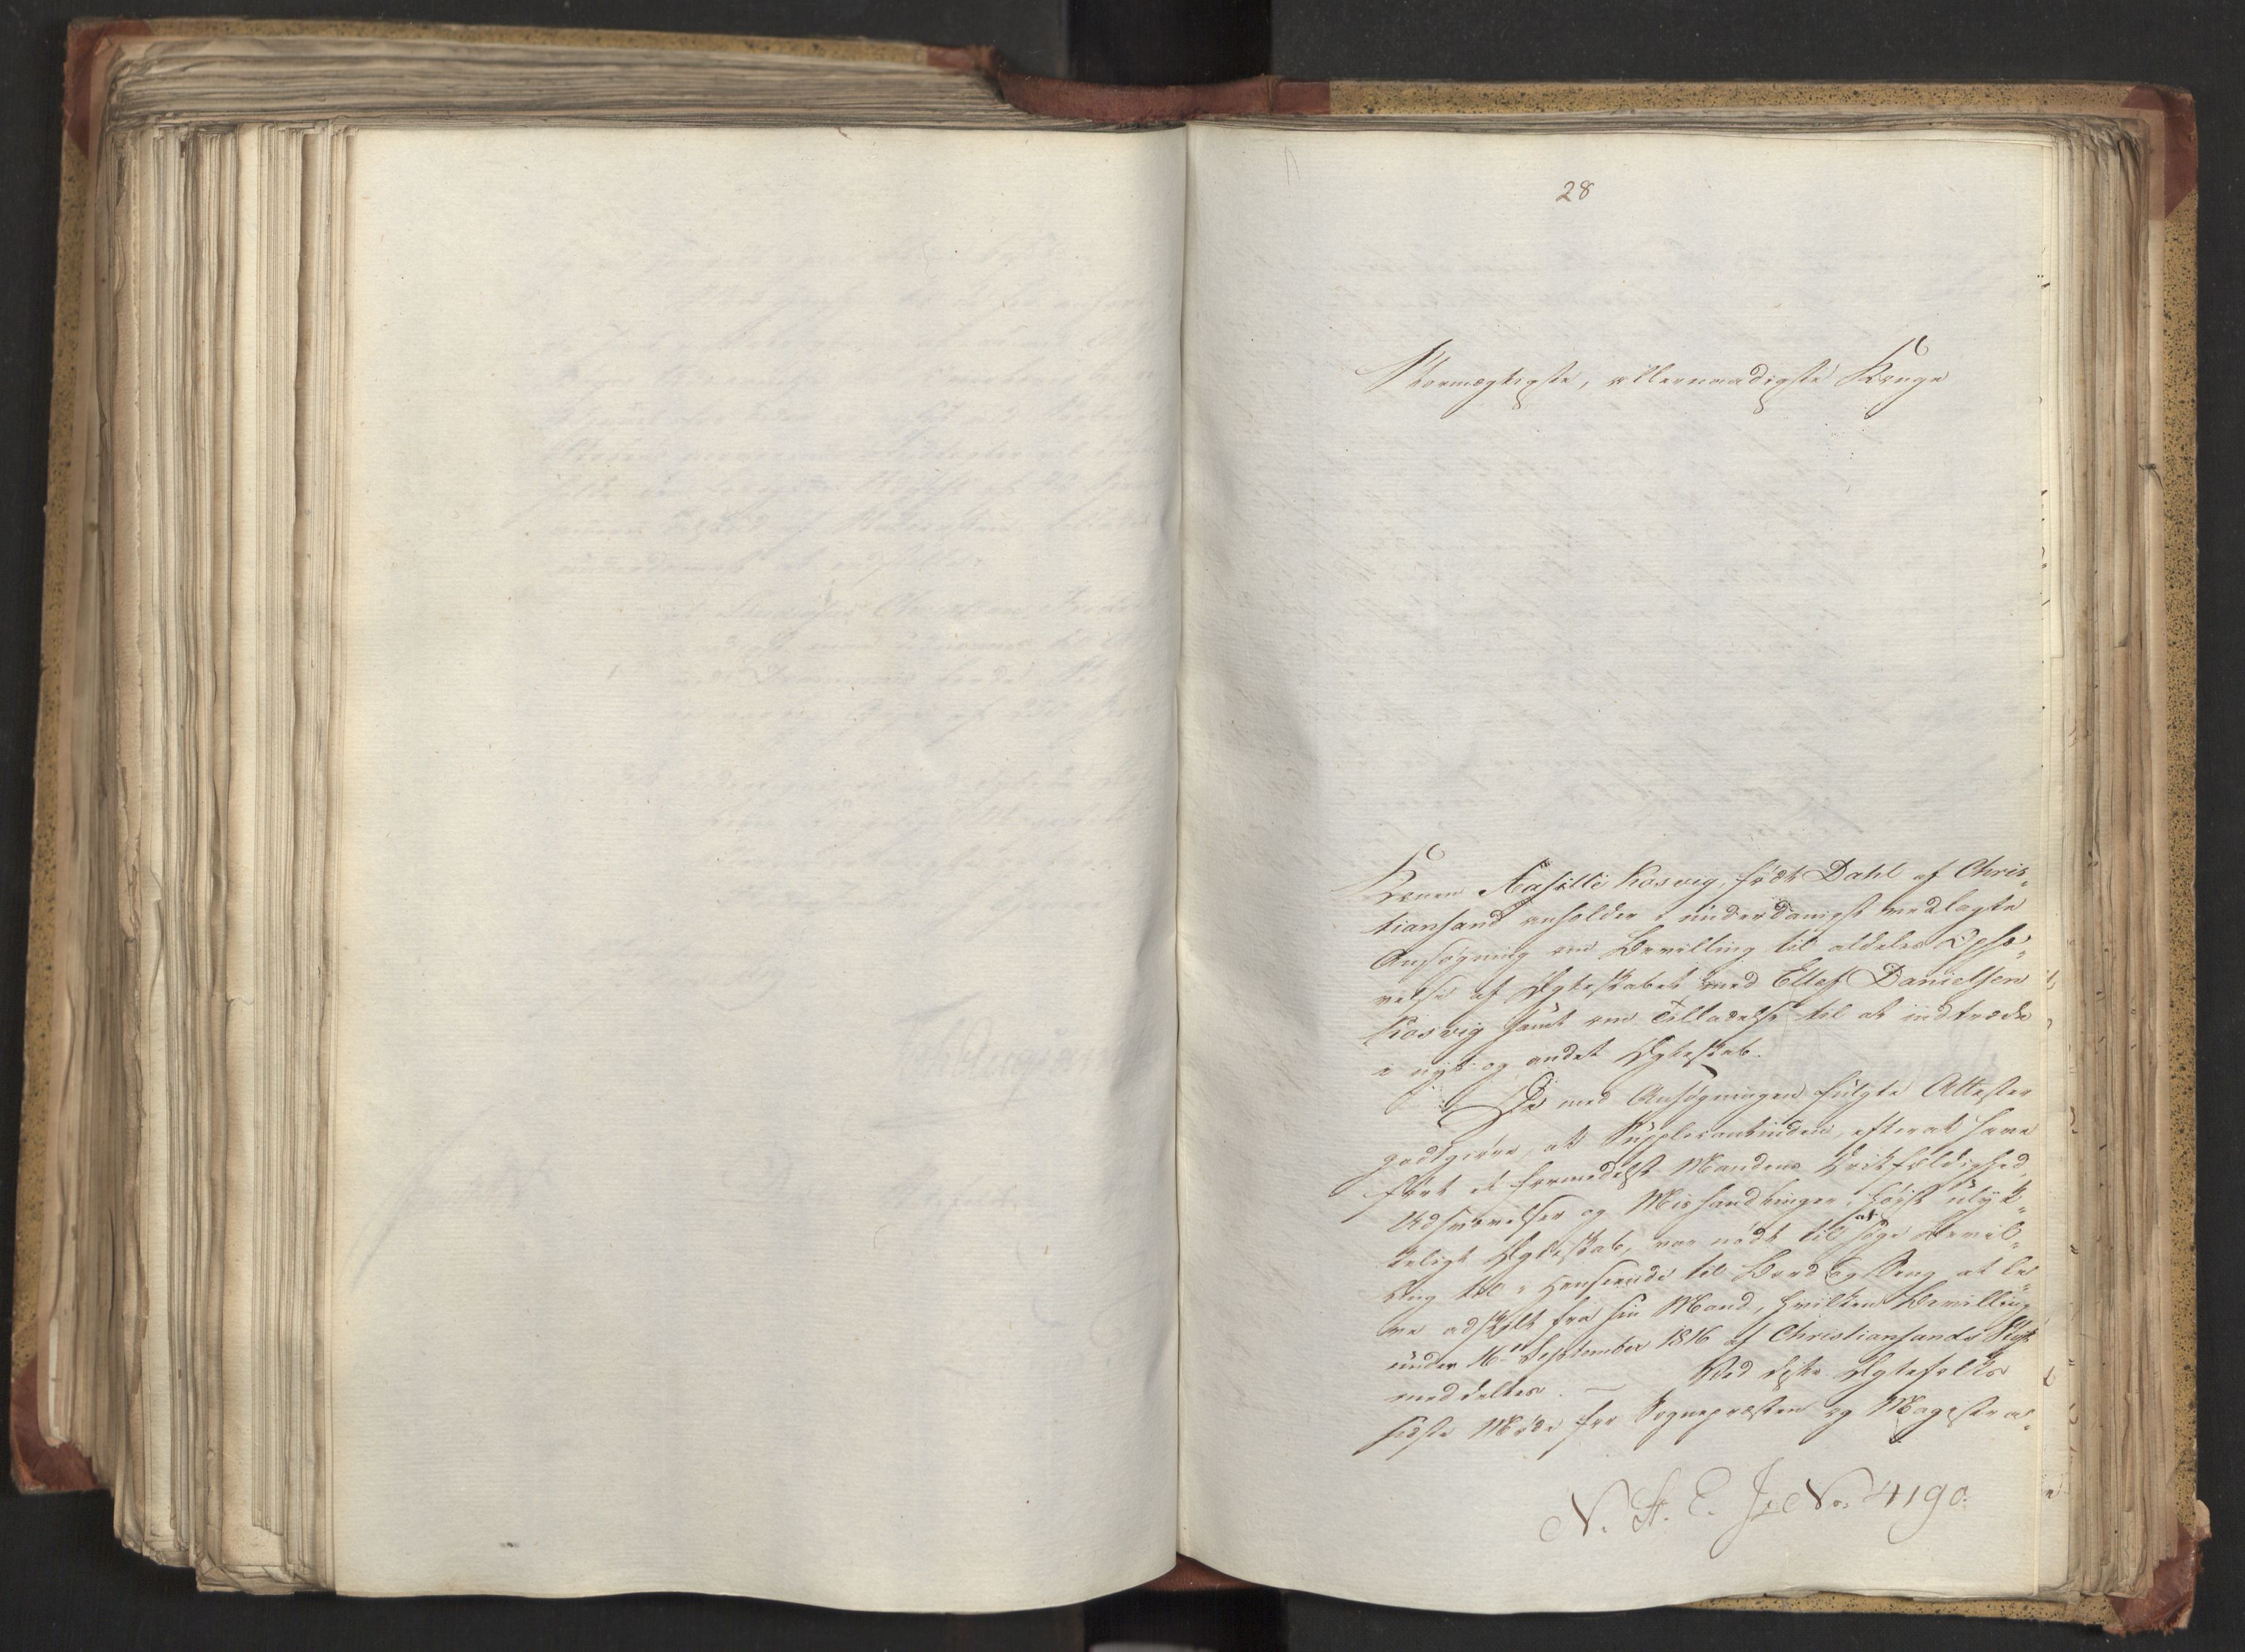 28
Stormægtigste, allernaadigste Konge
Konen Aasille Kosvig, født Dahl af Chris-
tiansand anholder i underdanigst vedlagte
Ansøgning om Bevilling til aldeles Ophæ-
velse af Ægteskabet med Ellef Danielsen
Kosvig samt om Tilladelse til at indtræde
i nyt og andet Ægteskab.
De med Ansøgningen fulgte Attester
godtgiøre, at Supplicantinden, efterat have
ført et formedelst Mandens Drikfældighed,
Udsvævelser og Mishandlinger, høist ulyk-
keligt Ægteskab, var nødt til at søge Bevil-
ling til i Henseende til Bord og Seng at le-
ve adskilt fra sin Mand, hvilken Bevilling
under 16de September 1816 af Christiansands Stift
meddeltes. — Ved disse Ægtefolks
sidste Møde for Sognepræsten og Magistra-
N. St. E. J: No. 4190.